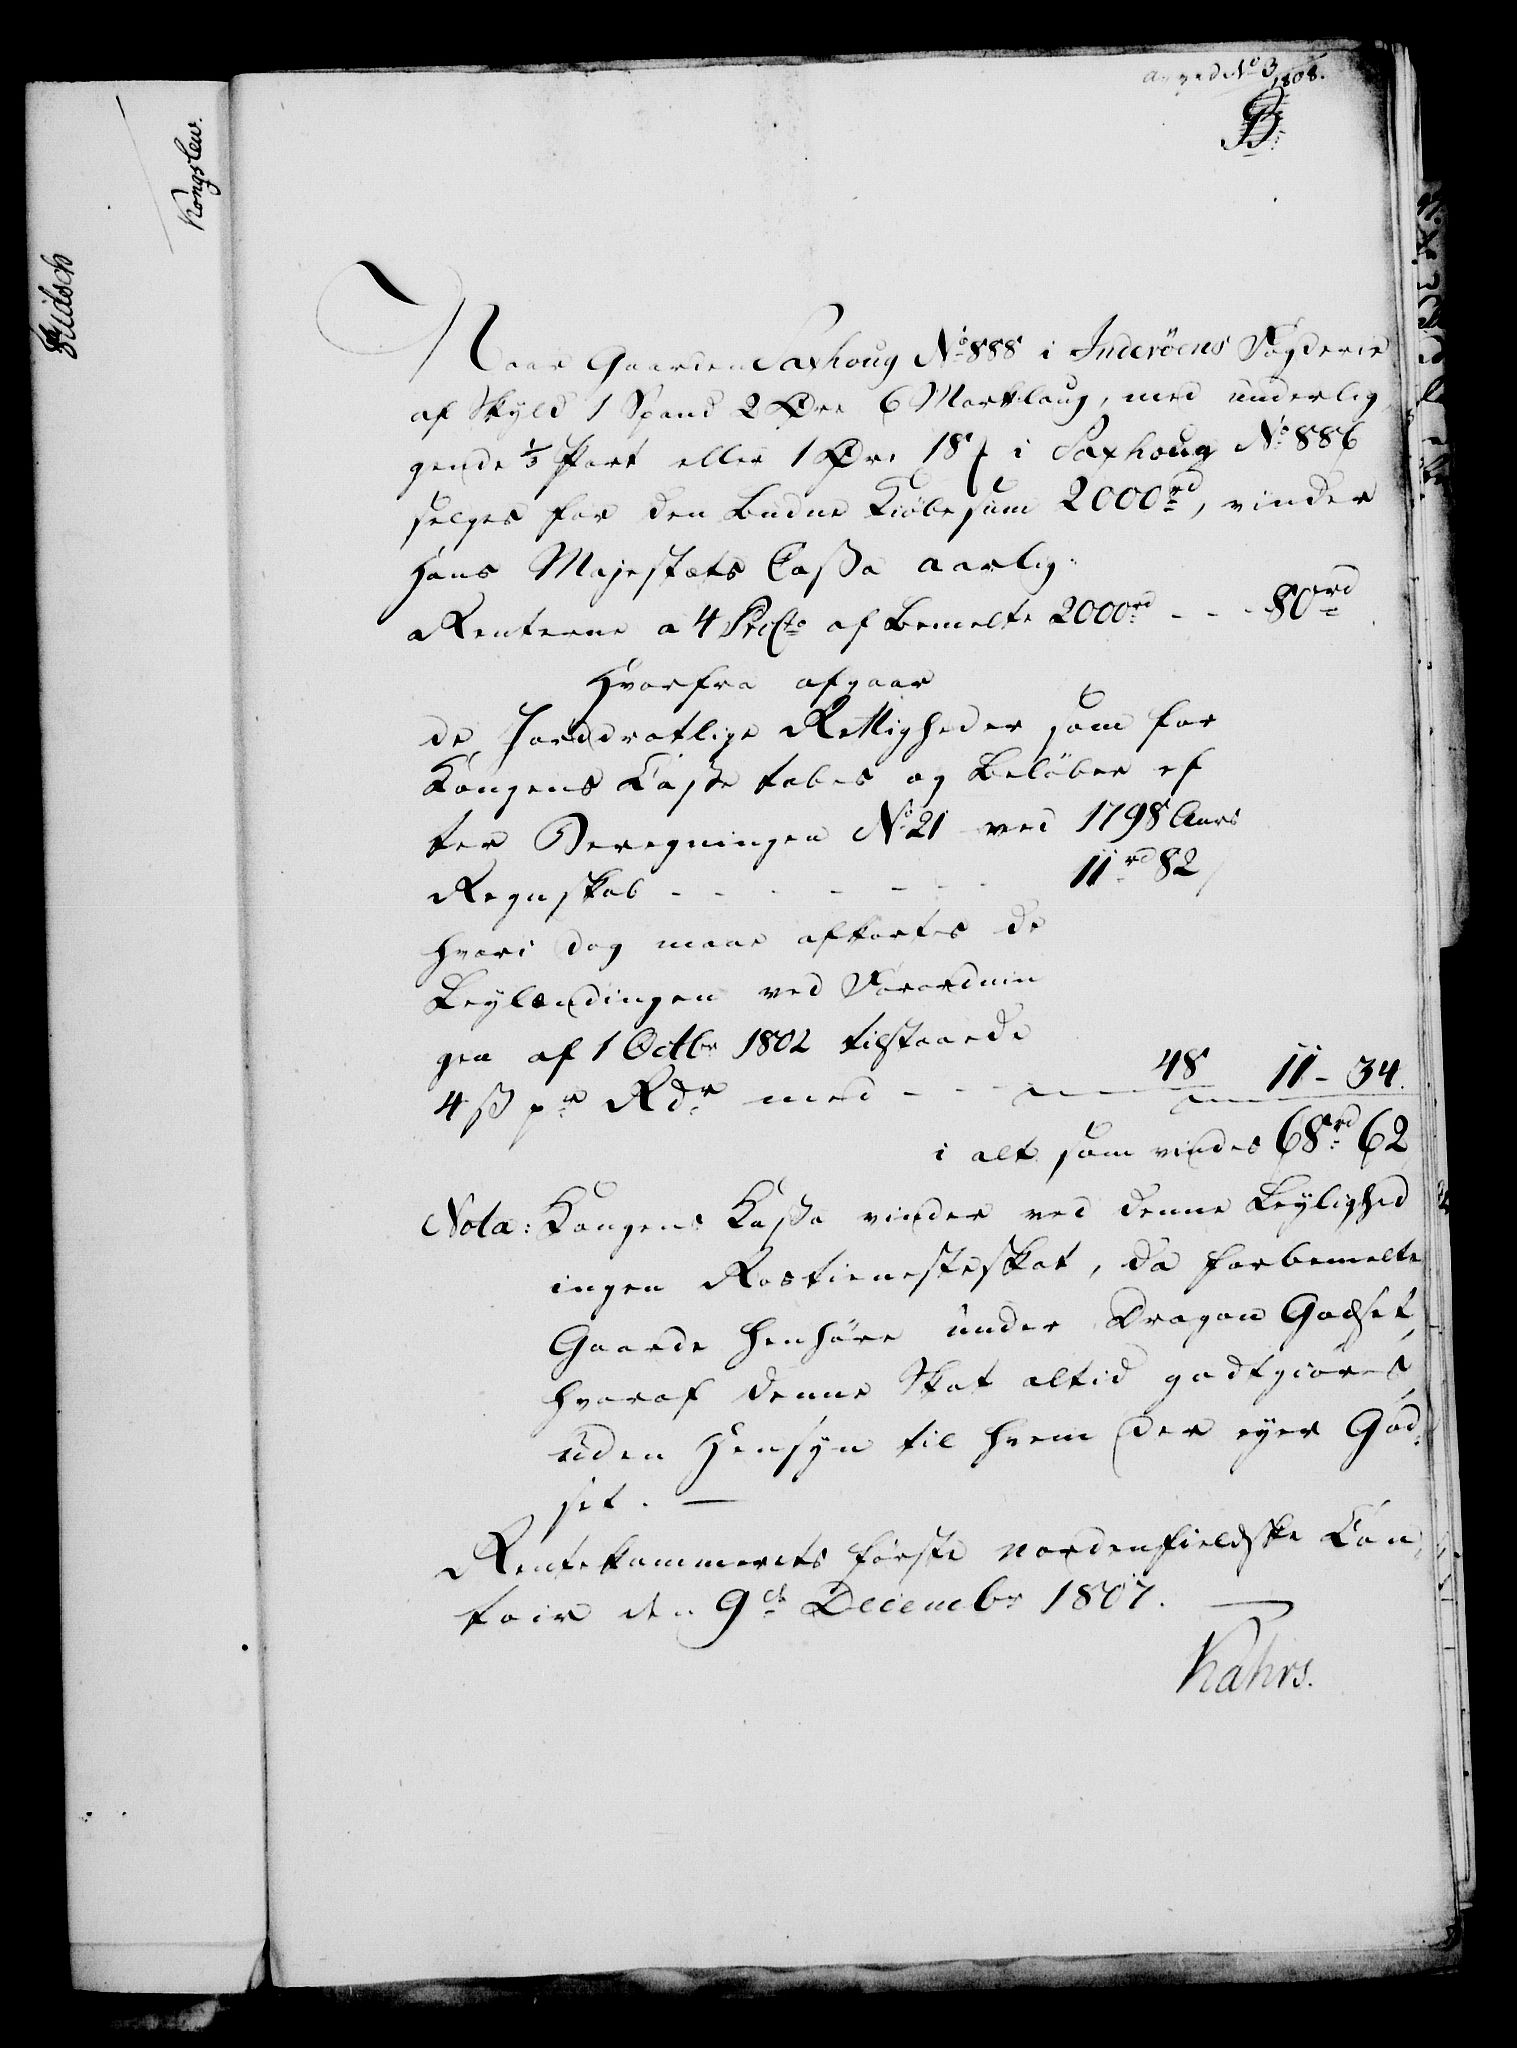 No 3 1808.
B.
Naar Gaarden Saxhoug No 888 i Inderöens Fogderie
af Skyld 1 Spand 2 Øre 6 Marklaug, med underlig
gende 1/3 Part eller 1 Øre 18 i Saxhoug No 886
selges for den budne Kiöbesum 2000rd, vinder
Hans Majestæts Cassa aarlig:
Renterne a 4 PrCto af bemelte 2000rd - - - 80rd
Hvorfra afgaar
de Jorddrotlige Rettigheder som for
Kongens Casse tabes og beløber ef
ter Beregningen No 21 ved 1798 Aars
Regnskab - - - - - - 11rd 82
hvori dog maae afkortes de
Beylændingen ved Forordnin
gen af 1 Octbr 1802 tilstaaede
4 ß pr Rdr med - - - 48 11 - 34.
i alt som vindes 68rd 62
Nota: Kongens Kassa vinder ved denne Leylighed
ingen Rostienesteskat, da forbemelte
Gaarde henhöre under Dragon Godset,
hvoraf denne Skat altid godtgiöres,
uden Hensyn til hvem der eyer God-
set. —
Rentekammerets förste nordenfieldske Con,
toir den 9de Decembr 1807.
Kahrs.
Kongslew.